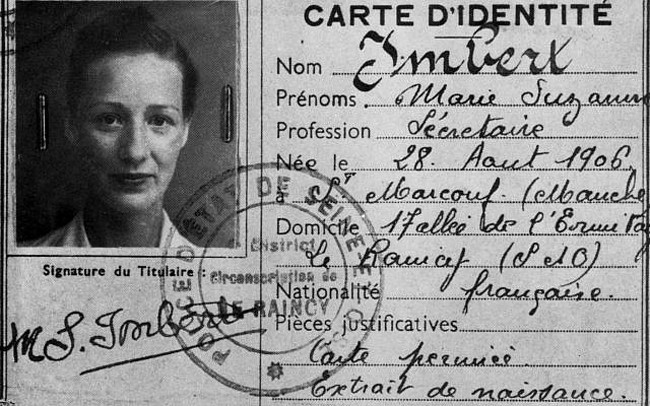 CARTE D'IDENTITÉ
Nom Imbert
Prénoms Marie Suzanne
Profession Sécretaire
Née le 28. Aout 1906
à St Marcouf. (Manche)
Domicile 17 allée de l'Ermitage
Le Raincy (S & O)
Nationalité française.
Pièces justificatives
Carte
Extrait de naissance.
Signature du Titulaire :
M S. Imbert
POLICE D'ETAT DE SEINE ET
District
Circonscription de
LE RAINCY